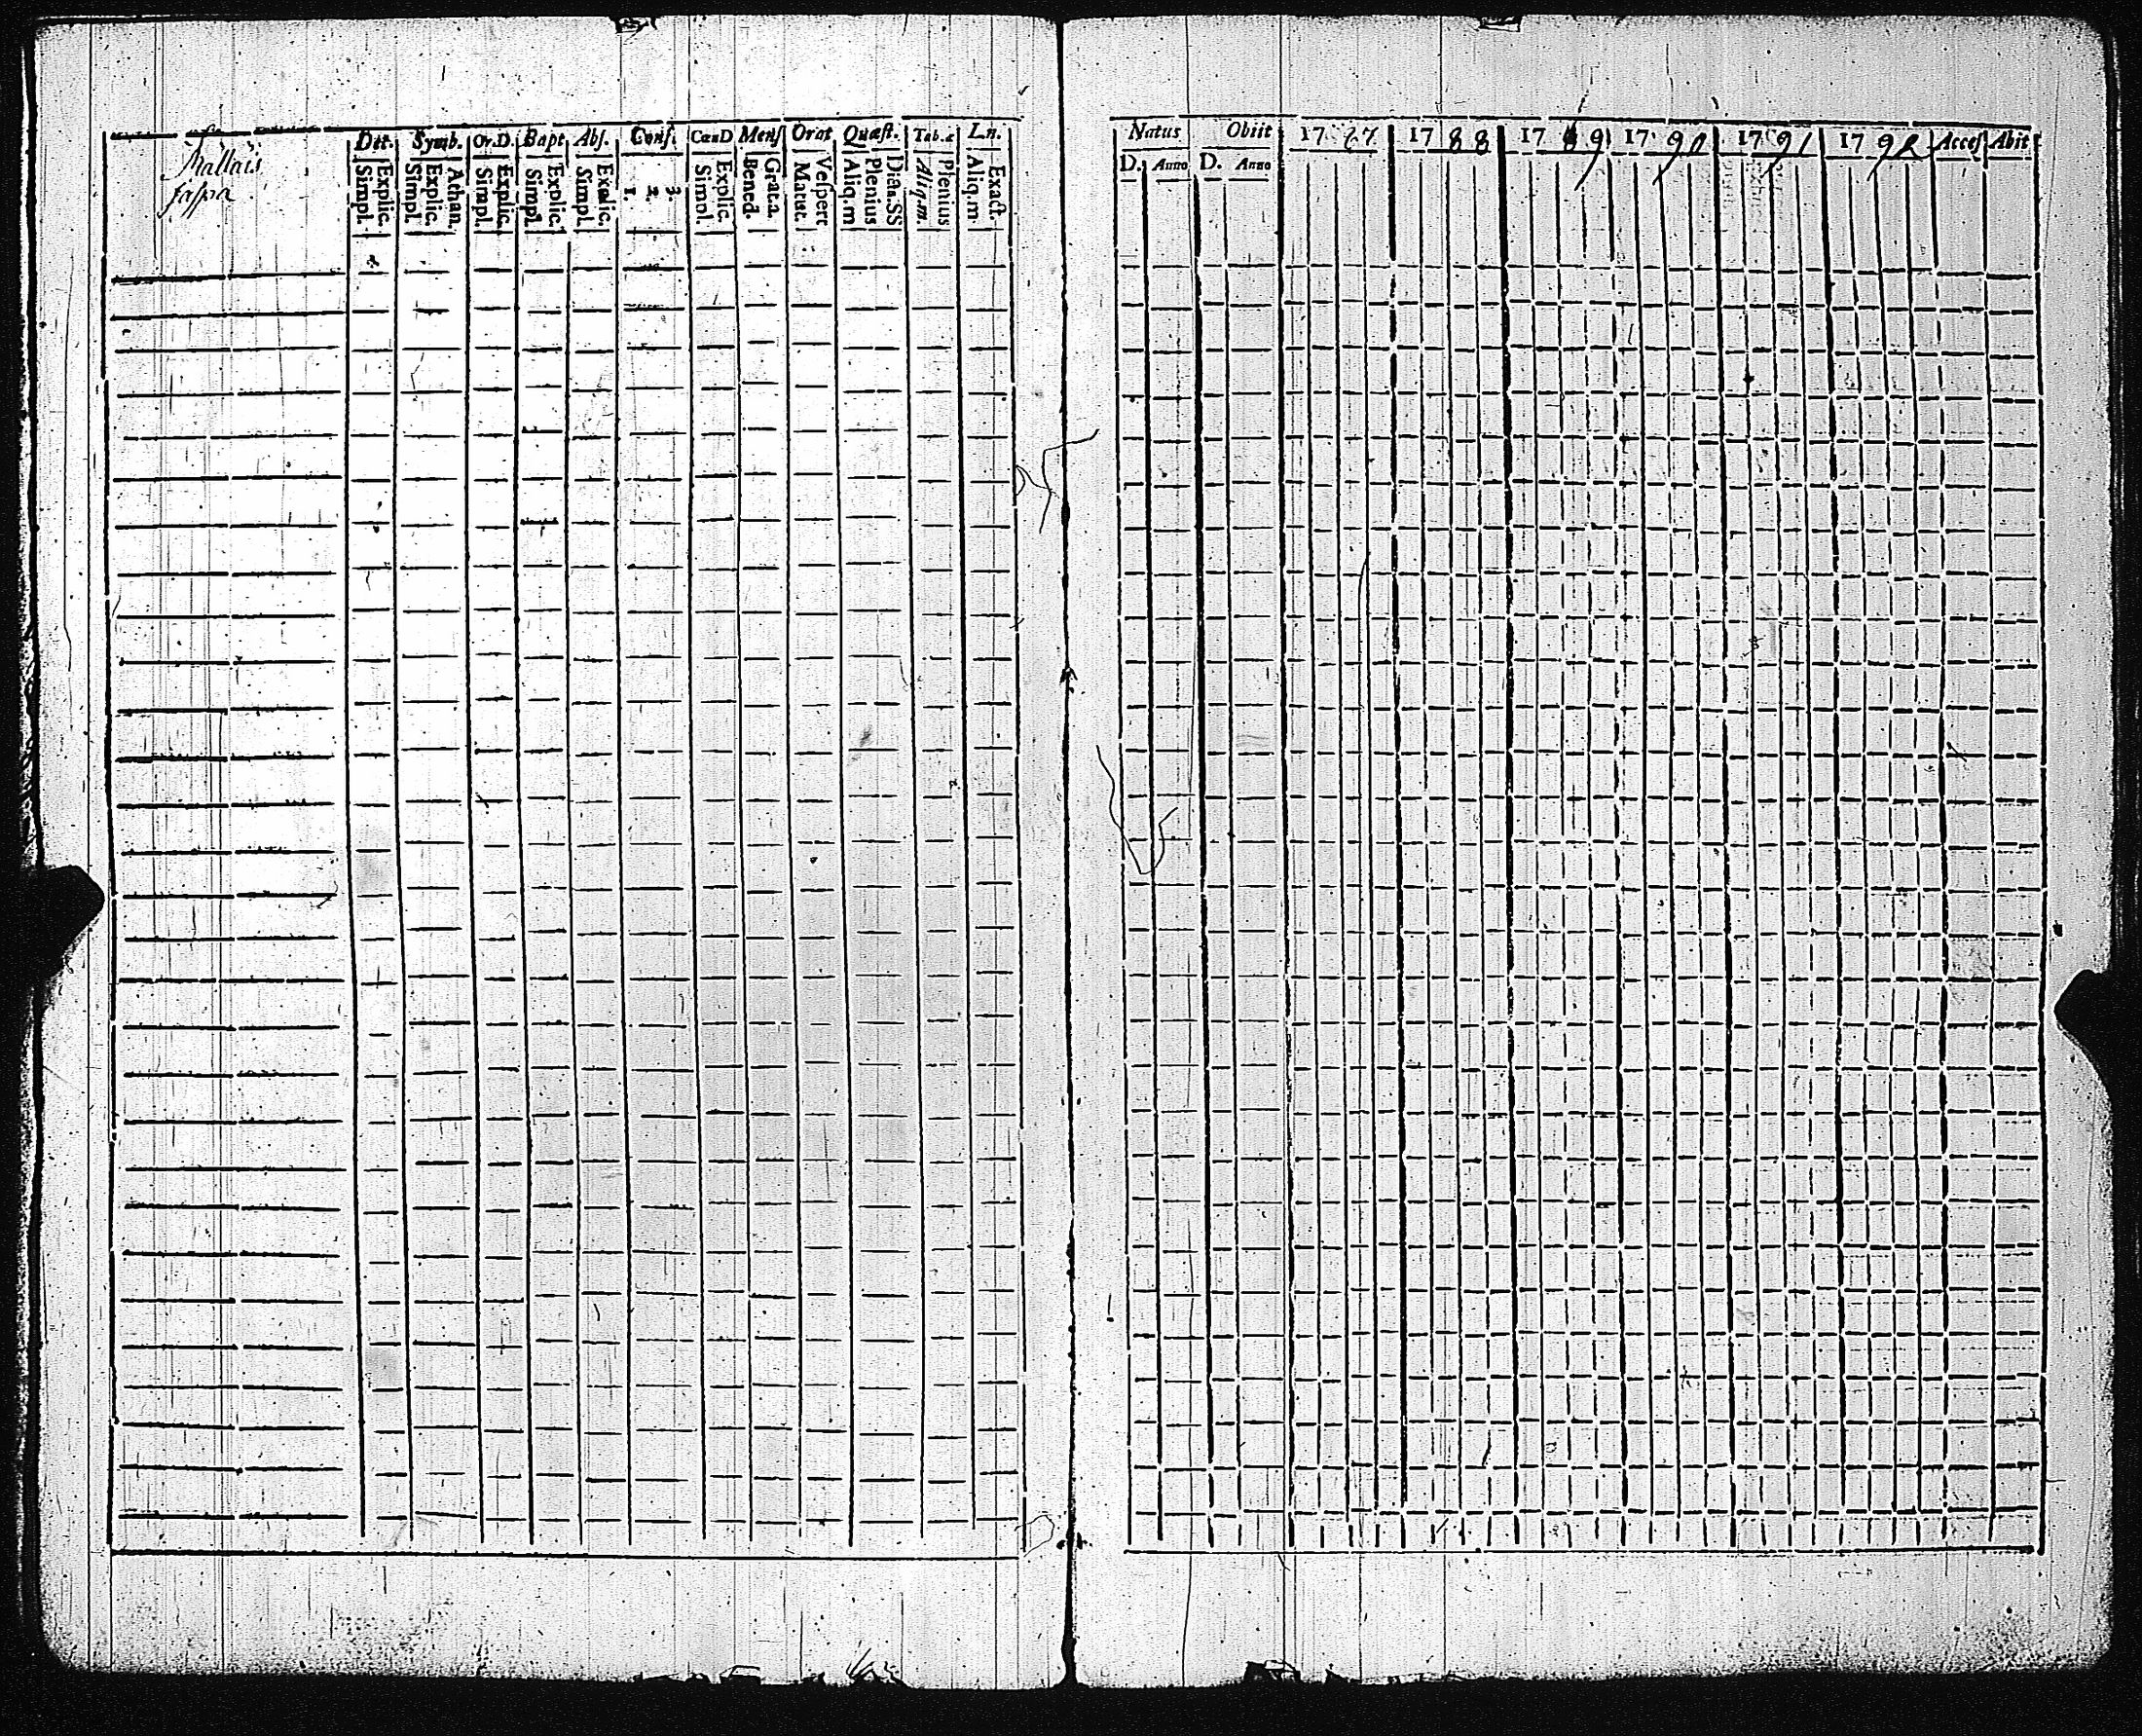 Dec. Symb. Or.D. Bapt Abſ. Conf. CœnD Menſ Orat Quæſt. Tab.æ L.n.
Simpl. Explic. Simpl. Explic. Athan. Simpl. Explic. Simpl. Explic. Simpl. Explic. 1. 2. 3. Simpl. Explic. Bened. Grat.a. Matut. Veſpert Aliq.m Plenius Dian.SS Aliq.m. Plenius Aliq.m. Exact.
Jaſpra
Natus Obiit 17 87 17 88 17 89 17 90 17 91 17 92 Acceſ Abit
D. Anno D. Anno